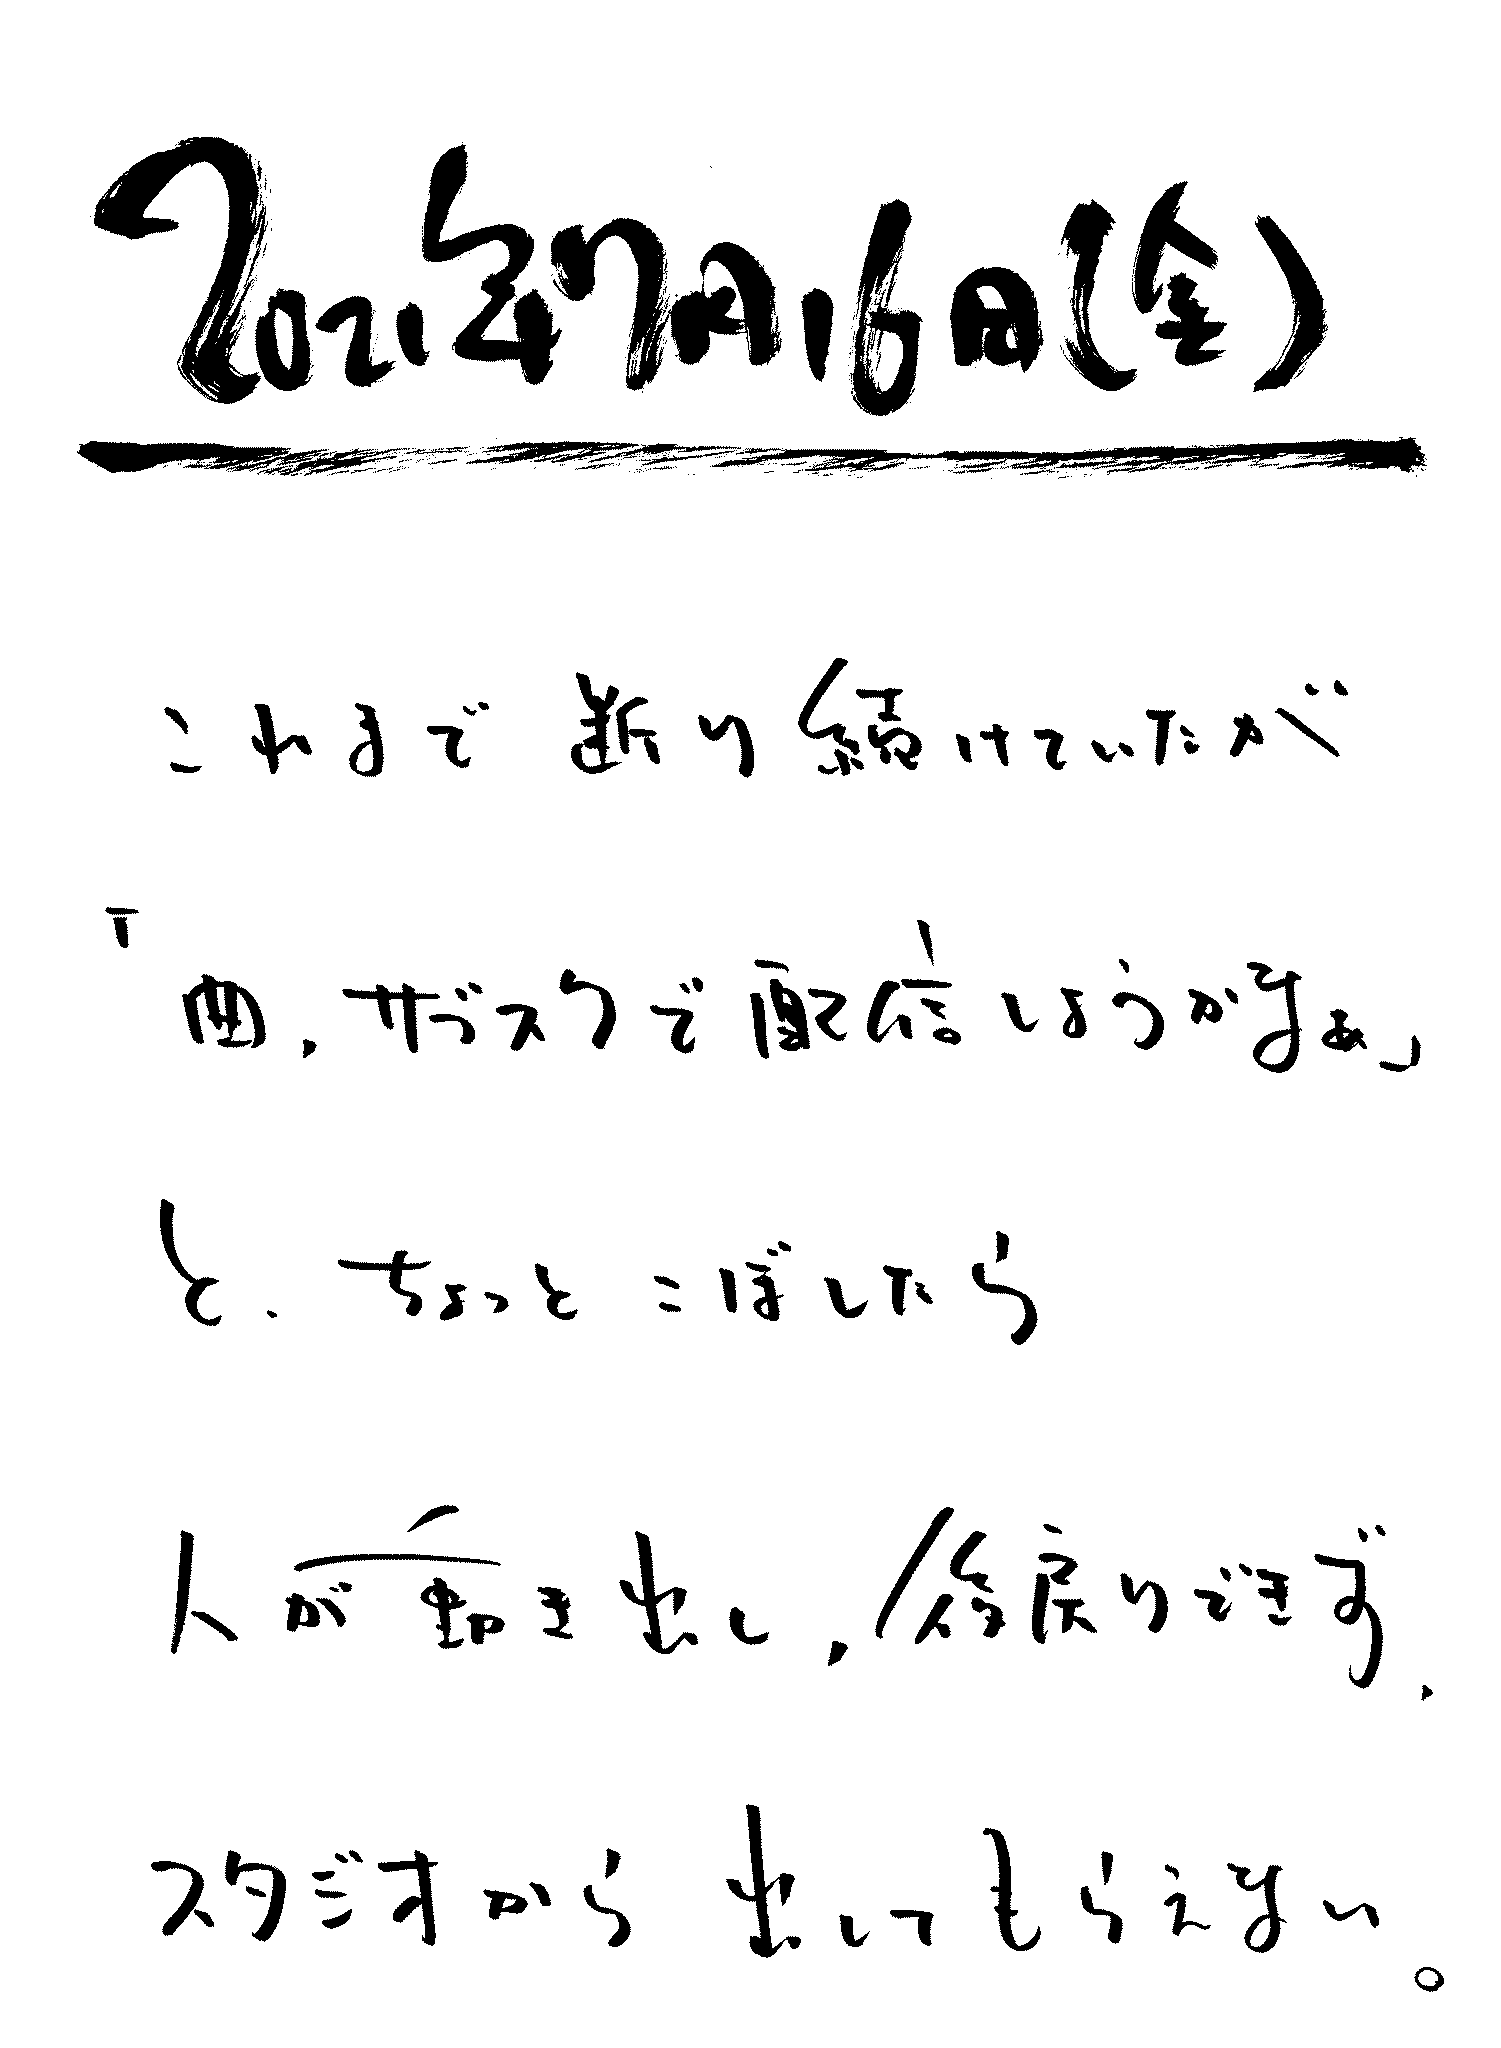 2021年7月16日(金)
これまで断り続けていたが
「曲、サブスクで配信しようかなぁ」
と、ちょっとこぼしたら
人が動き出し、後戻りできず、
スタジオから出してもらえない。